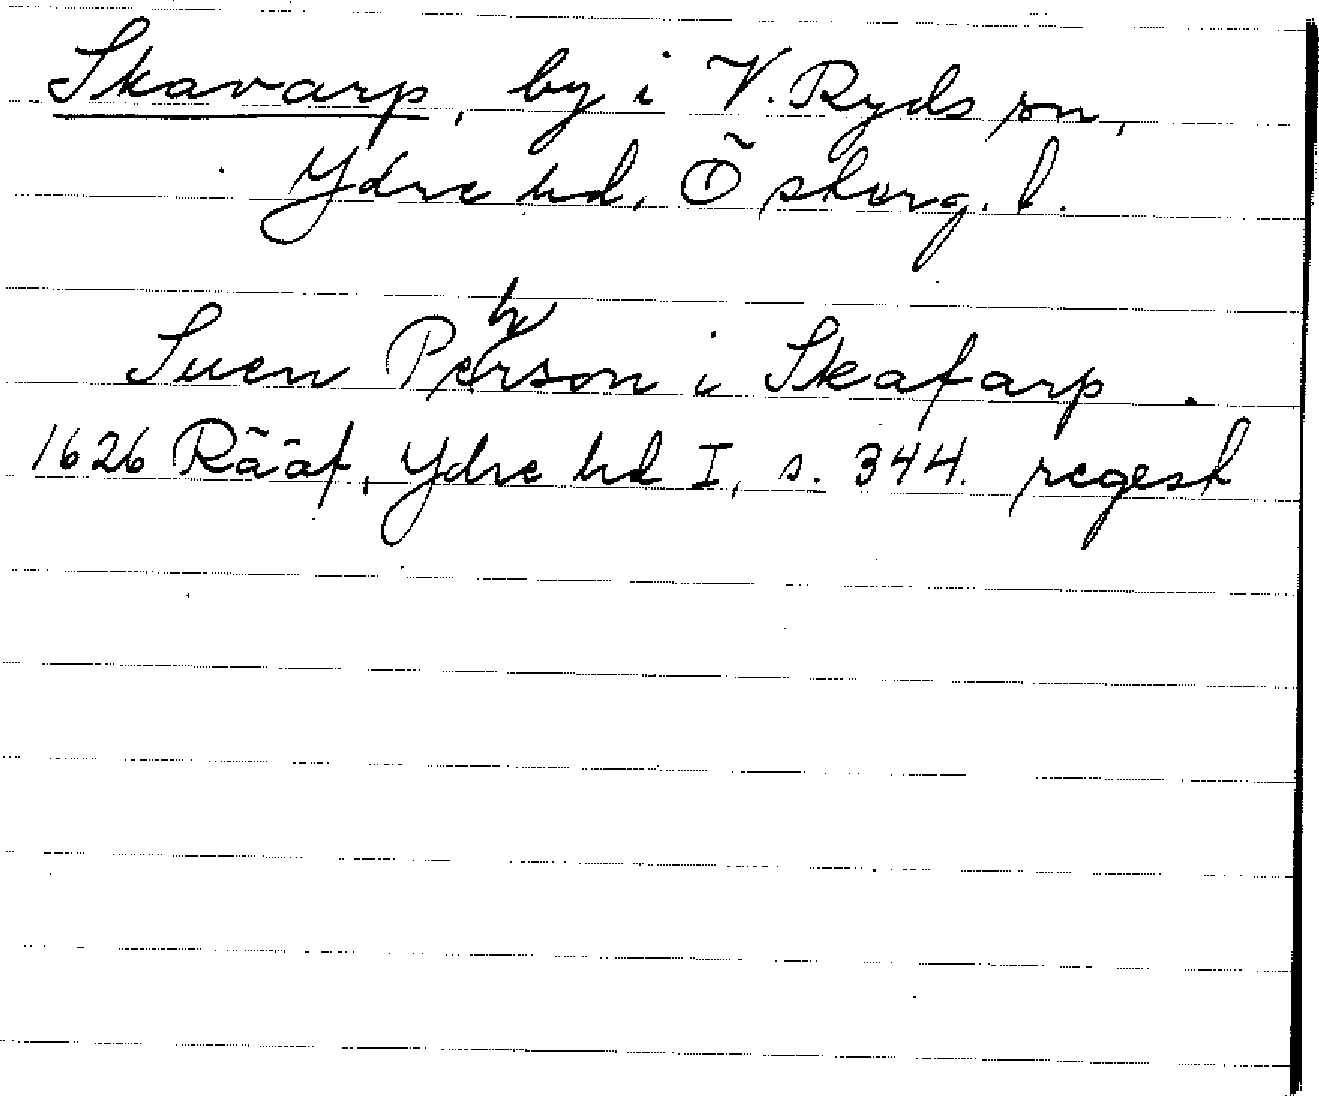 Skavarp, by i V. Ryds sn,
Ydre hd, Östergl. l.
Sven Person i Skafarp.
1626 Rääf, Ydre hd I, s. 344. regest